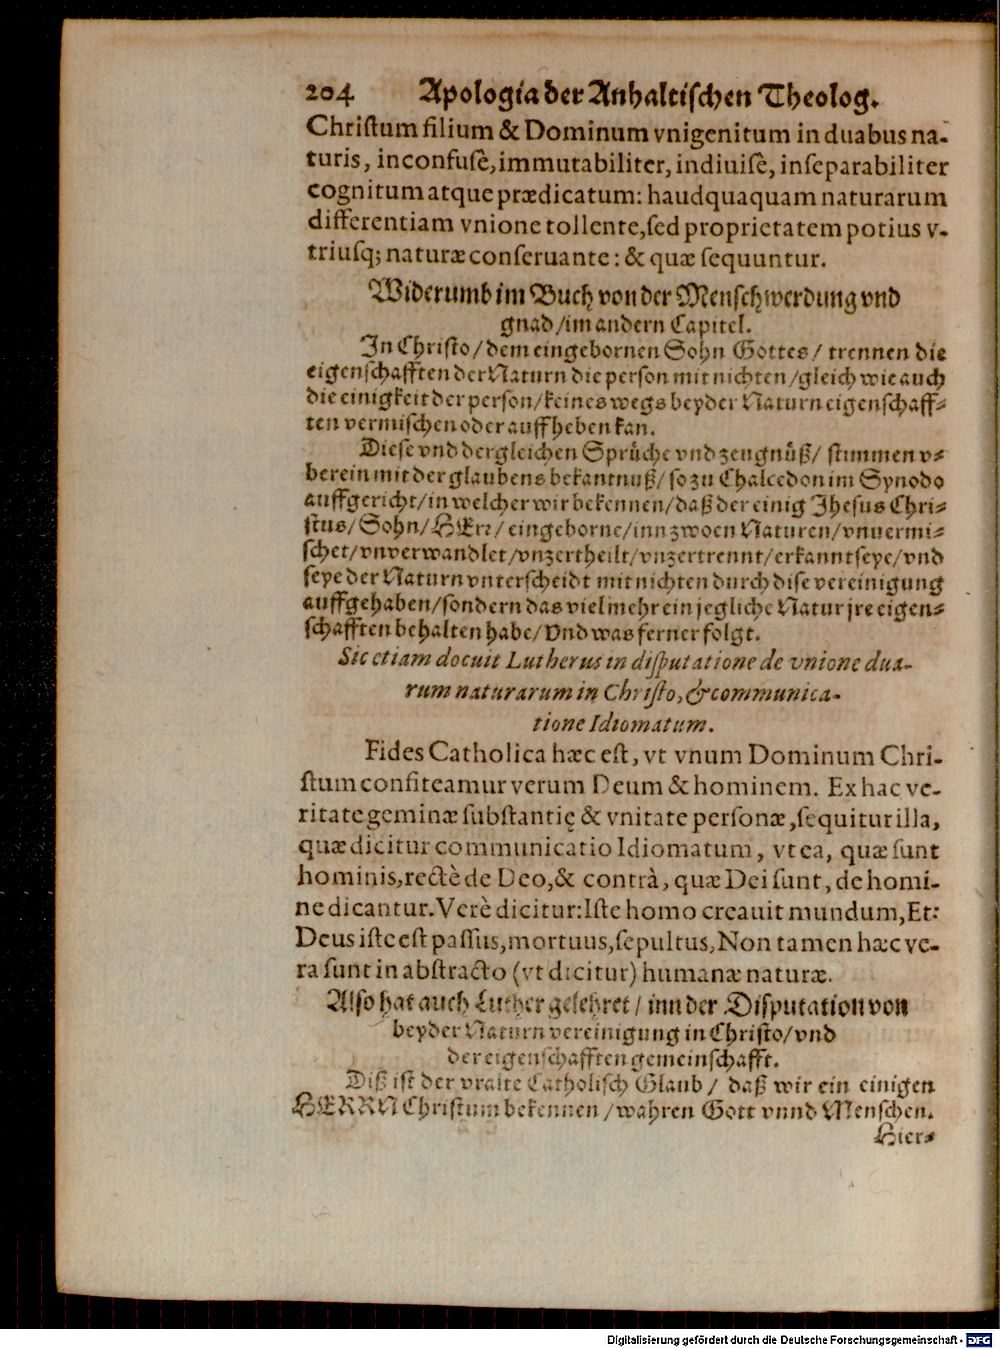 204 Apologia der Anhaltischen Theolog.
Christum filium & Dominum vnigenitum in duabus na-
turis, inconfusè, immutabiliter, indiuisè, inseparabiliter
cognitum atque prædicatum: haudquaquam naturarum
differentiam vnione tollente, sed proprietatem potius v-
triusq; naturæ conseruante: & quæ sequuntur.
Widerumb im Buch von der Menschwerdung vnd
gnad / im andern Capitel.
In Christo / dem eingebornen Sohn Gottes / trennen die
eigenschafften der Naturn die person mit nichten / gleich wie auch
die einigkeit der person / keines wegs beyder Naturn eigenschaff-
ten vermischen oder auffheben kan.
Diese vnd dergleichen Sprüche vnd zeugnüß / stimmen v-
berein mit der glaubens bekantnuß / so zu Chalcedon im Synodo
auffgericht / in welcher wir bekennen / daß der einig Jhesus Chri-
stus / Sohn / HErr / eingeborne / inn zwoen Naturen / vnuermi-
schet / vnverwandlet / vnzertheilt / vnzertrennt / erkannt seye / vnd
seye der Naturn vnterscheidt mit nichten durch dise vereinigung
auffgehaben / sondern das viel mehr ein jegliche Natur jre eigen-
schafften behalten habe / Vnd was ferner folgt.
Sic etiam docuit Lutherus in disputatione de vnione dua-
rum naturarum in Christo, & communica-
tione Idiomatum.
Fides Catholica hæc est, vt vnum Dominum Chri-
stum confiteamur verum Deum & hominem. Ex hac ve-
ritate geminæ substantię & vnitate personæ, sequitur illa,
quæ dicitur communicatio Idiomatum, vt ea, quæ sunt
hominis, rectè de Deo, & contrà, quæ Dei sunt, de homi-
ne dicantur. Verè dicitur: Iste homo creauit mundum, Et:
Deus iste est passus, mortuus, sepultus, Non tamen hæc ve-
ra sunt in abstracto (vt dicitur) humanæ naturæ.
Also hat auch Luther gelehret / inn der Disputation von
beyder Naturn vereinigung in Christo / vnd
der eigenschafften gemeinschafft.
Diß ist der vralte Catholisch Glaub / daß wir ein einigen
HERRN Christum bekennen / wahren Gott vnnd Menschen.
Hier-
Digitalisierung gefördert durch die Deutsche Forschungsgemeinschaft - DFG